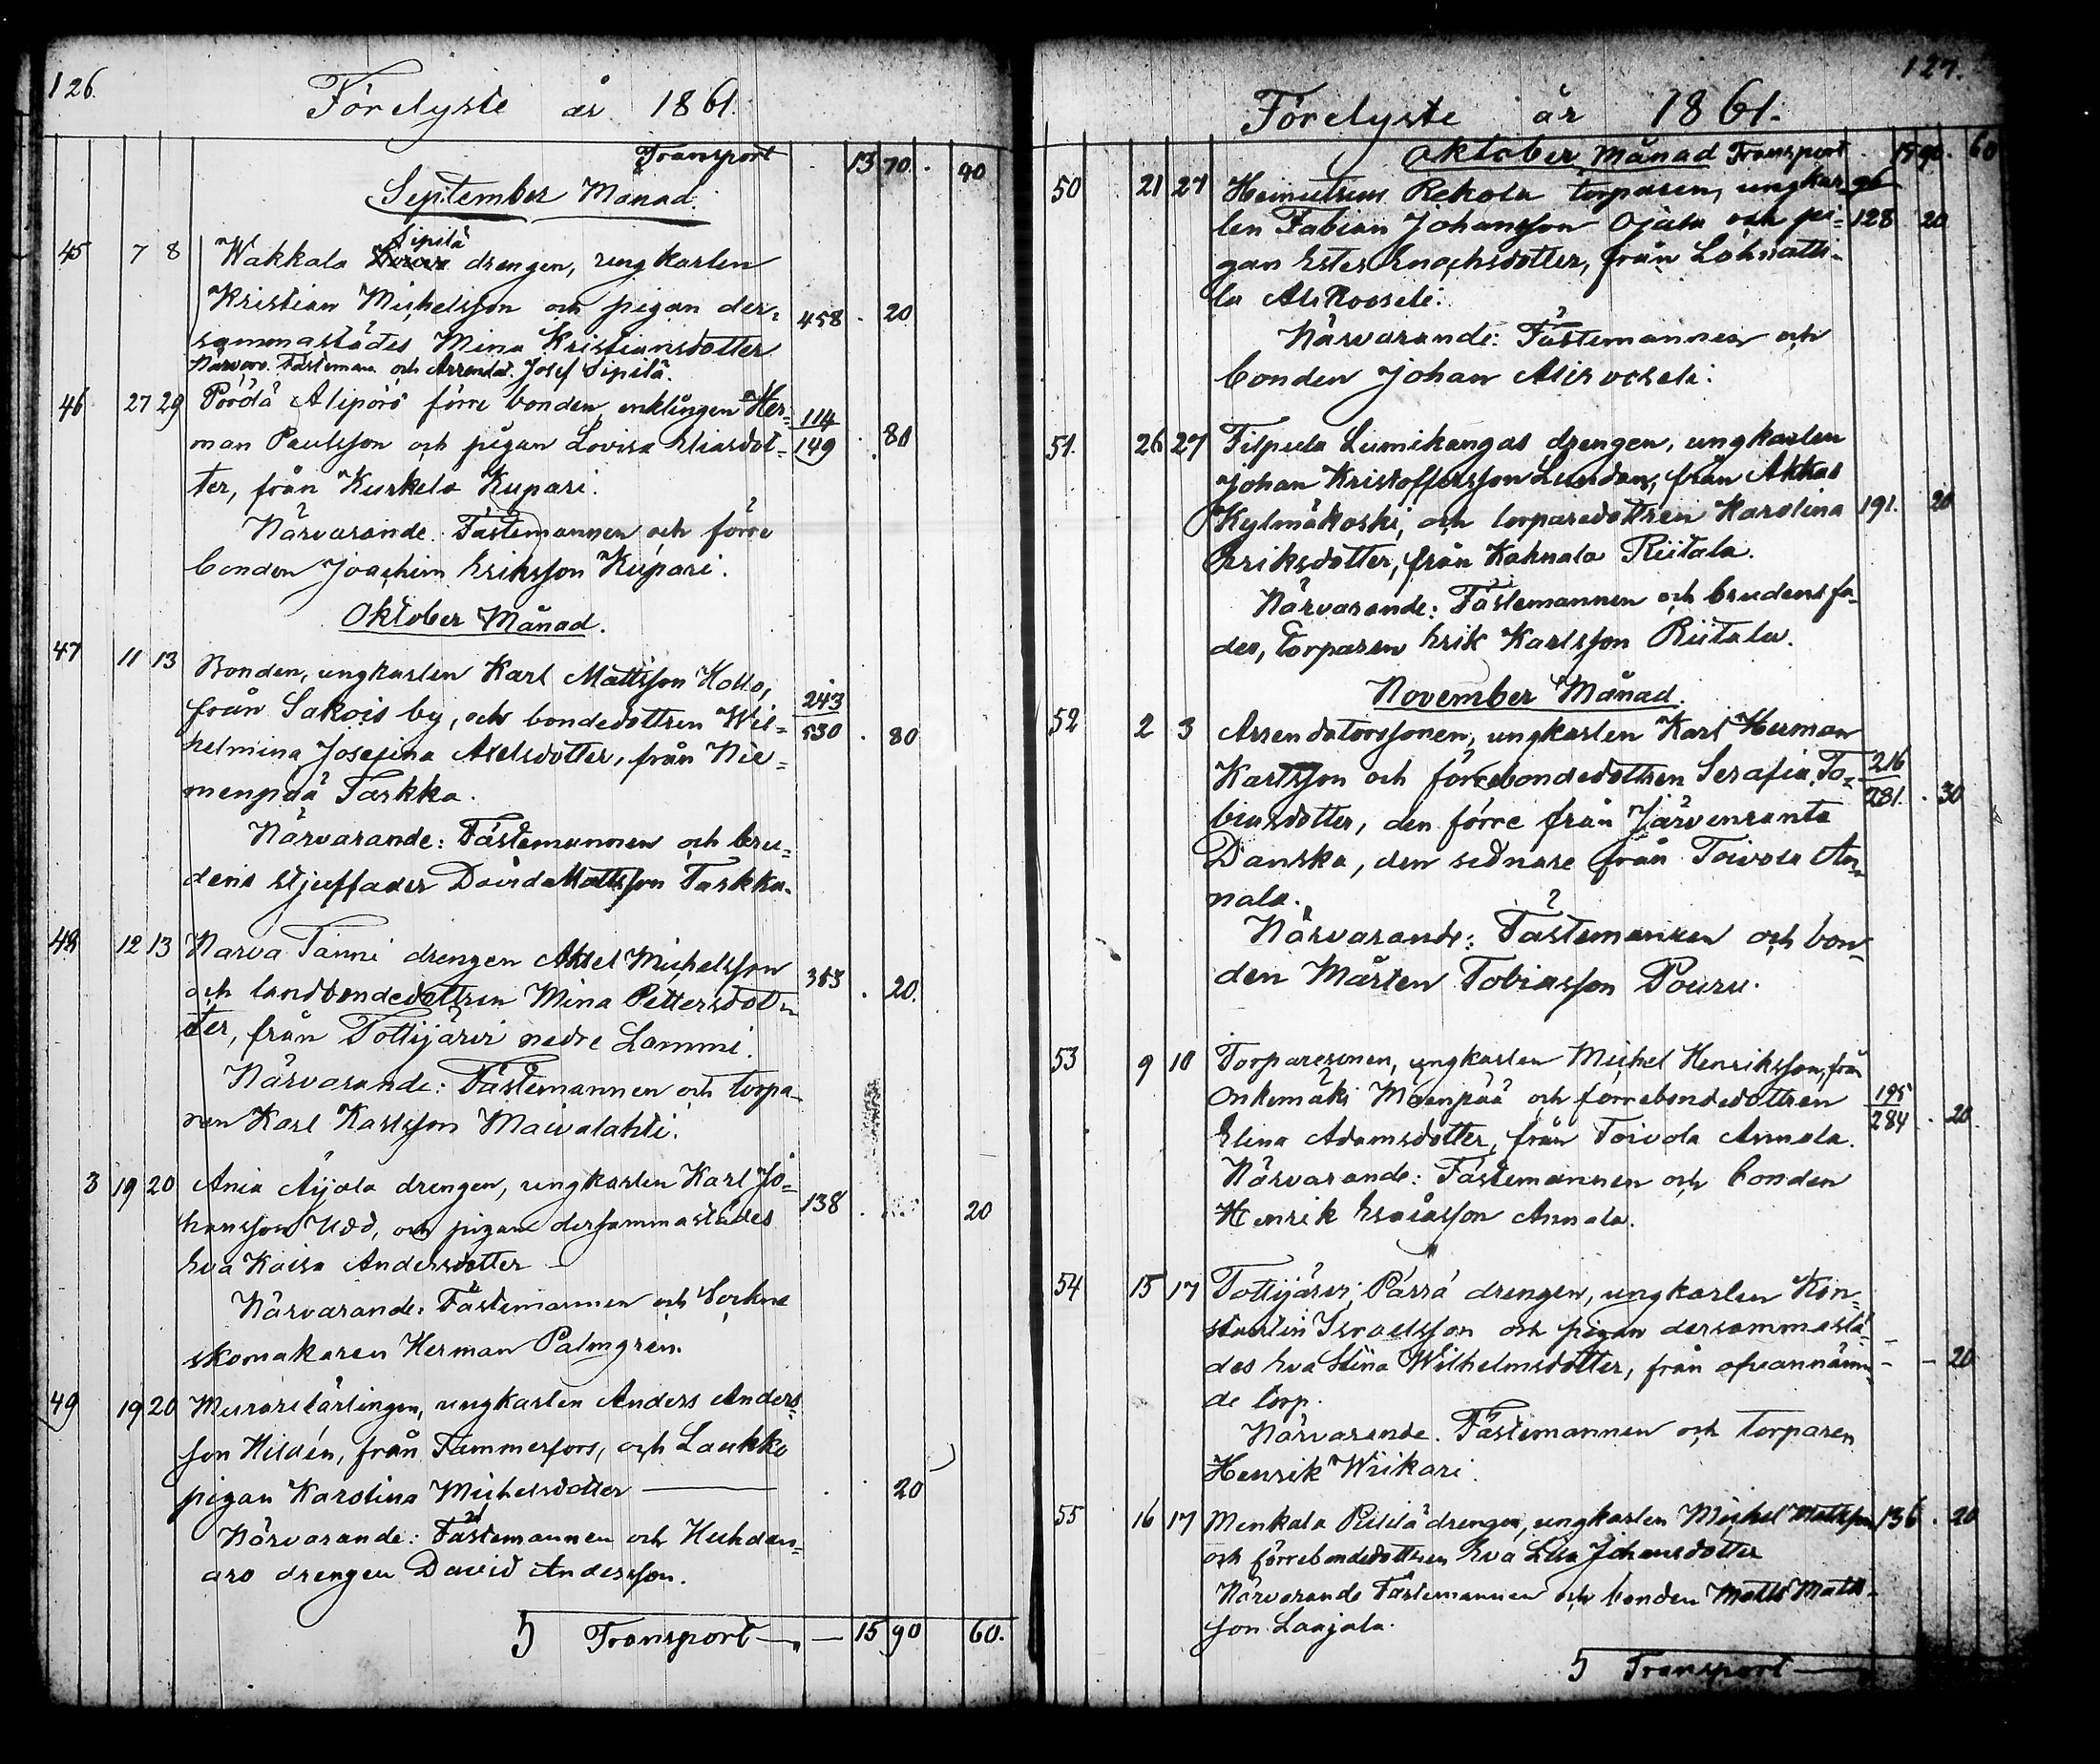 126.
Förelyste år 1861.
Transport 13 70. 40
September Månad.
Sipilä
45 7 8 Wakkala drengen, ungkarlen
Kristian Michelsson och pigan der= 458 . 20
sammastädes Mina Kristiansdotter
Närvar. Fästeman. och Arrendat. Josef Sipilä.
46 27 29 Pörölä Alipörö förre bonden, enklingen Her= 114
man Paulsson och pigan Lovisa Eliasdot= 149 . 80
ter, från Kurkela Kupari.
Närvarande. Fästemannen och förre
bonden Joachim Eriksson Kupari.
Oktober Månad.
47 11 13 Bonden, ungkarlen Karl Mattsson Kollo, 243
från Sakois by, och bondedottren Wil= 530 . 80
helmina Josefina Axelsdotter, från Nie=
menpää Tarkka.
Närvarande: Fästemannen och bru=
dens stjuffader David Mattsson Tarkka.
48 12 13 Narva Tanni drengen Aksel Michelsson 353
och landbondedottren Mina Pettersdot= . 20.
ter, från Tottijärvi nedre Lammi.
Närvarande: Fästemannen och torpa-
ren Karl Karlsson Maivalahti.
3 19 20 Ania Äijälä drengen, ungkarlen Karl Jo= 138 . 20
hansson Udd, och pigan dersammastädes
Eva Kaisa Andersdotter
Närvarande: Fästemannen och Sockne
skomakaren Herman Palmgrén.
49 19 20 Murarelärlingen, ungkarlen Anders Anders=
son Hildén, från Tammerfors, och Laukko
pigan Karolina Michelsdotter . 20
Närvarande: Fästemannen och Huhdan=
aro drengen David Andersson.
5 Transport 15 90 60.
127.
Förelyste år 1861.
Oktober Månad Transport 15 90. 60
50 21 27 Heinutrius Rekola torparen, ungkar= 96
len Fabian Johansson Ojala och pi= 128 20
gan Ester Enochsdotter, från Lohnatti=
la Alikooseli.
Närvarande: Fästemannen och
bonden Johan Alikooseli.
51. 26 27 Tilpula Lumikangas drengen, ungkarlen
Johan Kristoffersson Lundan, från Akkas
Kylmäkoski, och torparedottren Karolina 191. 20
Eriksdotter, från Kahnala Riitala.
Närvarande: Fästemannen och brudens fa-
der, torparen Erik Karlsson Riitala.
November Månad.
52 2 3 Arrendatorssonen, ungkarlen Karl Herman
Karlsson och förrebondedottren Serafia To= 216
biasdotter, den förre från Järvenranta 281. . 30
Danska, den sednare från Toivola An=
nala.
Närvarande: Fästemannen och bon-
den Mårten Tobiasson Pouru.
53 9 10 Torparesonen, ungkarlen Michel Henriksson, från
Onkemäki Mäenpää och förrebondedottren 195
Elina Adamsdotter, från Toivola Annala. 284 . 20.
Närvarande: Fästemannen och bonden
Henrik Esaiasson Annala.
54 15 17 Tottijärvi Pärrä drengen, ungkarlen Kon=
stantin Israelsson och pigan dersammastä-
des Eva Stina Wilhelmsdotter, från ofvannämn= - - 20
de torp.
Närvarande. Fästemannen och torparen
Henrik Wiikari.
55 16 17 Menkala Pilila drengen, ungkarlen Michel Mattsson 136 . 20
och förrebondedottren Eva Lisa Johansdotter
Närvarande Fästemannen och bonden Matts Matts-
son Laajala.
5 Transport